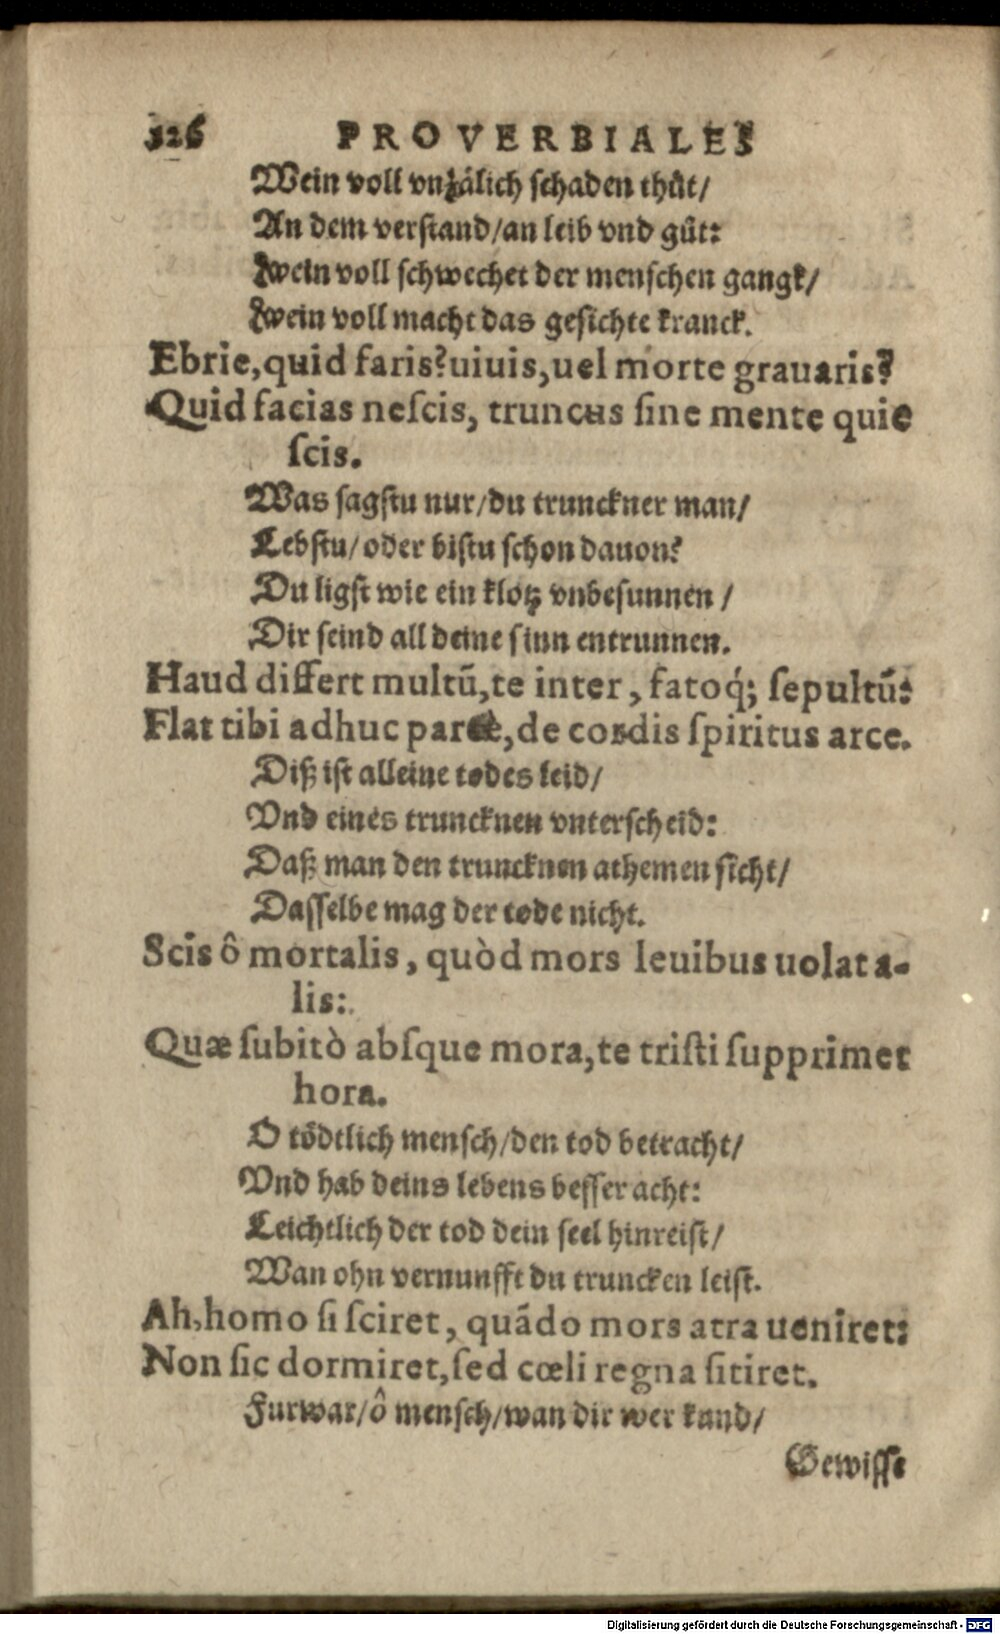 326 PROVERBIALES
Wein voll vnzälich schaden thůt/
An dem verstand/an leib vnd gůt:
Zwein voll schwechet der menschen gangk/
Zwein voll macht das gesichte kranck.
Ebrie,quid faris?uiuis,uel morte grauaris?
Quid facias neſcis, truncus ſine mente quie
ſcis.
Was sagstu nur/du trunckner man/
Lebstu/oder bistu schon dauon?
Du ligst wie ein klotz vnbesunnen/
Dir seind all deine sinn entrunnen.
Haud differt multũ,te inter, fatoq́; ſepultũ:
Flat tibi adhuc parcè,de cordis ſpiritus arce.
Diß ist alleine todes leid/
Vnd eines truncknen vnterscheid:
Daß man den truncknen athemen sicht/
Dasselbe mag der tode nicht.
Scis ô mortalis, quòd mors leuibus uolat a-
lis:
Quæ ſubitò abſque mora,te triſti ſupprimet
hora.
O tödtlich mensch/den tod betracht/
Vnd hab deins lebens besser acht:
Leichtlich der tod dein seel hinreist/
Wan ohn vernunfft du truncken leist.
Ah,homo ſi ſciret, quãdo mors atra ueniret:
Non ſic dormiret,ſed cœli regna ſitiret.
Furwar/ô mensch/wan dir wer kund/
Gewisse
Digitalisierung gefördert durch die Deutsche Forschungsgemeinschaft - DFG